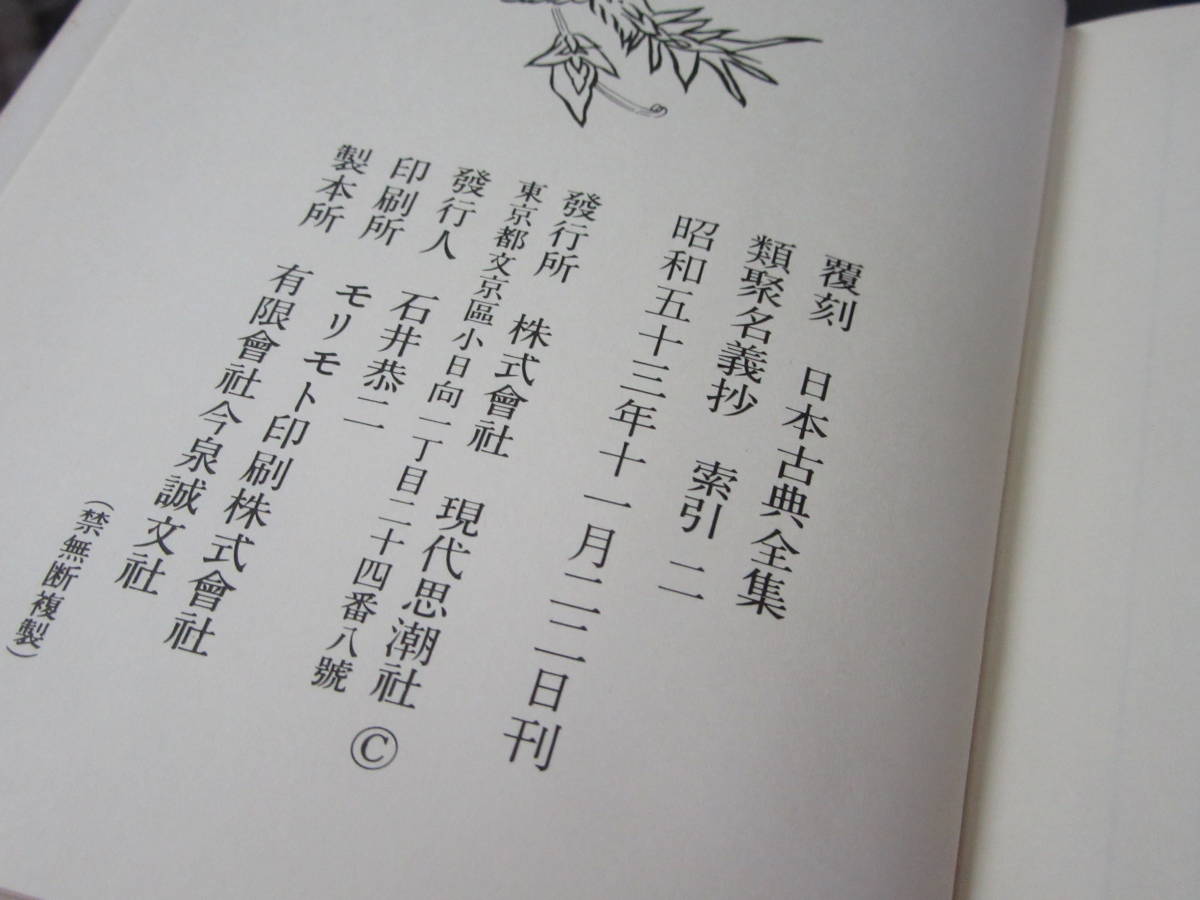 覆刻 日本古典全集
類聚名義抄 索引 二
昭和五十三年十一月二二日刊
發行所 株式會社 現代思潮社 ©
東京都文京區小日向一丁目二十四番八號
發行人 石井恭二
印刷所 モリモト印刷株式會社
製本所 有限會社今泉誠文社
(禁無断複製)